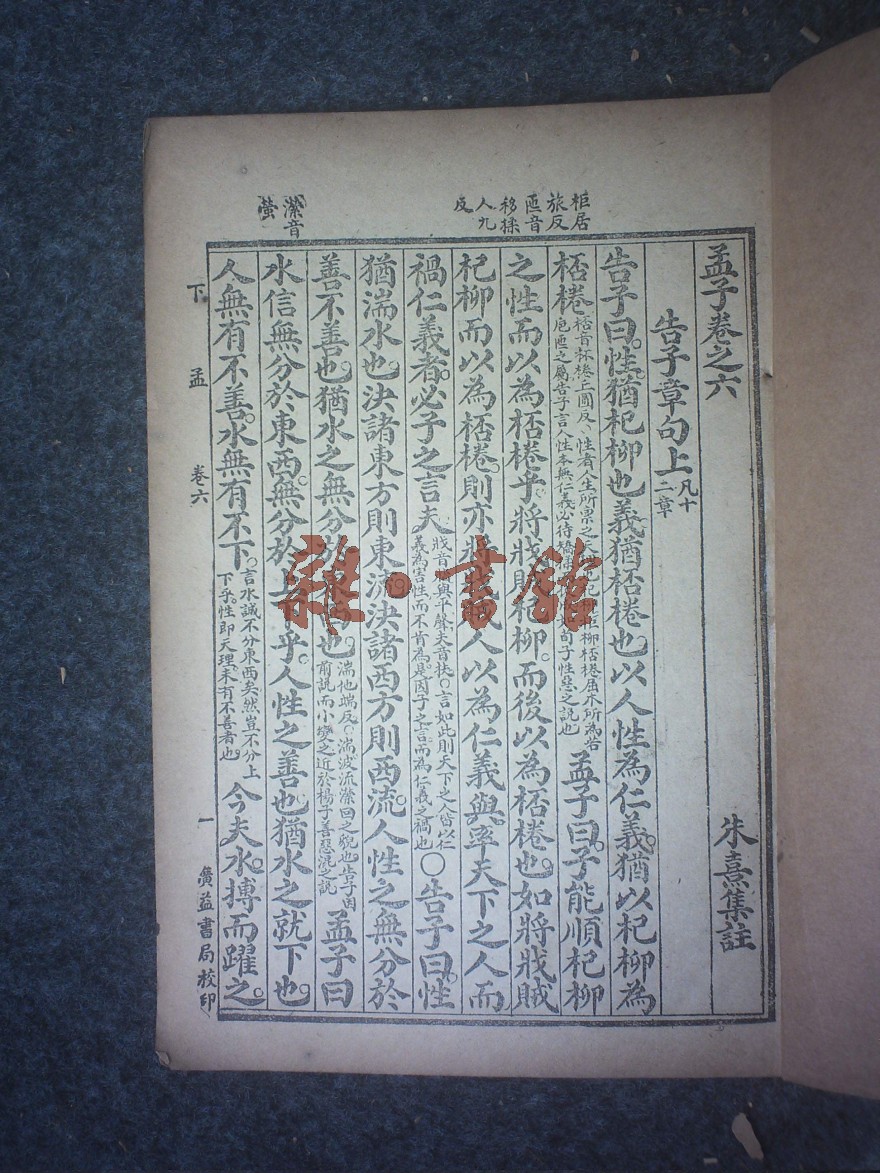 柜居
旅反
匜音
移楺
人九
反
濚音
螢
孟子卷之六
朱熹集註
告子章句上
凡十
二章
告子曰性猶杞柳也義猶桮棬也以人性為仁義猶以杞柳為
桮棬
桮音杯棬丘圓反性者人生所稟之天 柳桮棬屈木所為若
巵匜之屬告子言人性本無仁義必待矯 荀子性惡之說也
孟子曰子能順杞柳
之性而以為桮棬乎將戕賊杞柳而後以為桮棬也如將戕賊
杞柳而以為桮棬則亦將戕賊人以為仁義與率天下之人而
禍仁義者必子之言夫
戕音 與平聲夫音扶○言如此則天下之人皆以仁
義為害性而不肯為是因子之言而為仁義之禍也
○告子曰性
猶湍水也決諸東方則東流決諸西方則西流人性之無分於
善不善也猶水之無分於 也
湍他端反○湍波流濚回之貌也告子因
前說而小變之近於楊子善惡混之說
孟子曰
水信無分於東西無分於上下乎人性之善也猶水之就下也
人無有不善水無有不下
○言水誠不分東西矣然豈不分上
下乎性即天理未有不善者也
今夫水搏而躍之
下 孟 卷六 一 廣益書局校印
雜·書館